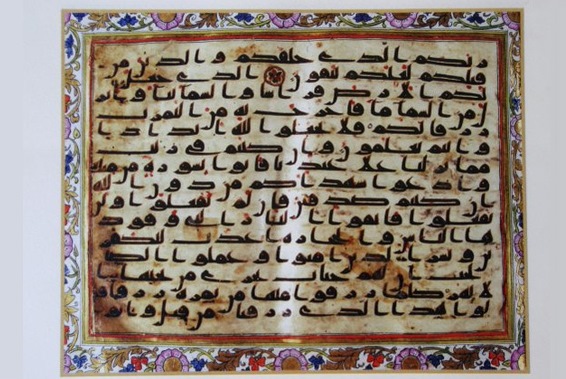 ربكم الذي خلقكم والذين من
قبلكم لعلكم تتقون الذي جعل
لكم الارض فرشا والسما بنا وانز
ل من السما ما فاخرج به من الثمرت
رزقا لكم فلا تجعلوا لله اندادا
وانتم تعلمون وان كنتم في ريب
مما نزلنا على عبدنا فاتوا بسورة من مثله
وادعوا شهداكم من دون الله
ان كنتم صدقين فان لم تفعلوا ولن
تفعلوا فاتقوا النار التي وقود
ها الناس والحجارة اعدت للكفر
ين وبشر الذين امنوا وعملوا ا
لصلحت ان لهم جنت تجري من تحتها ا
لانهر كلما رزقوا منها من ثمرة رزقا قا
لوا هذا الذي رزقنا من قبل واتوا